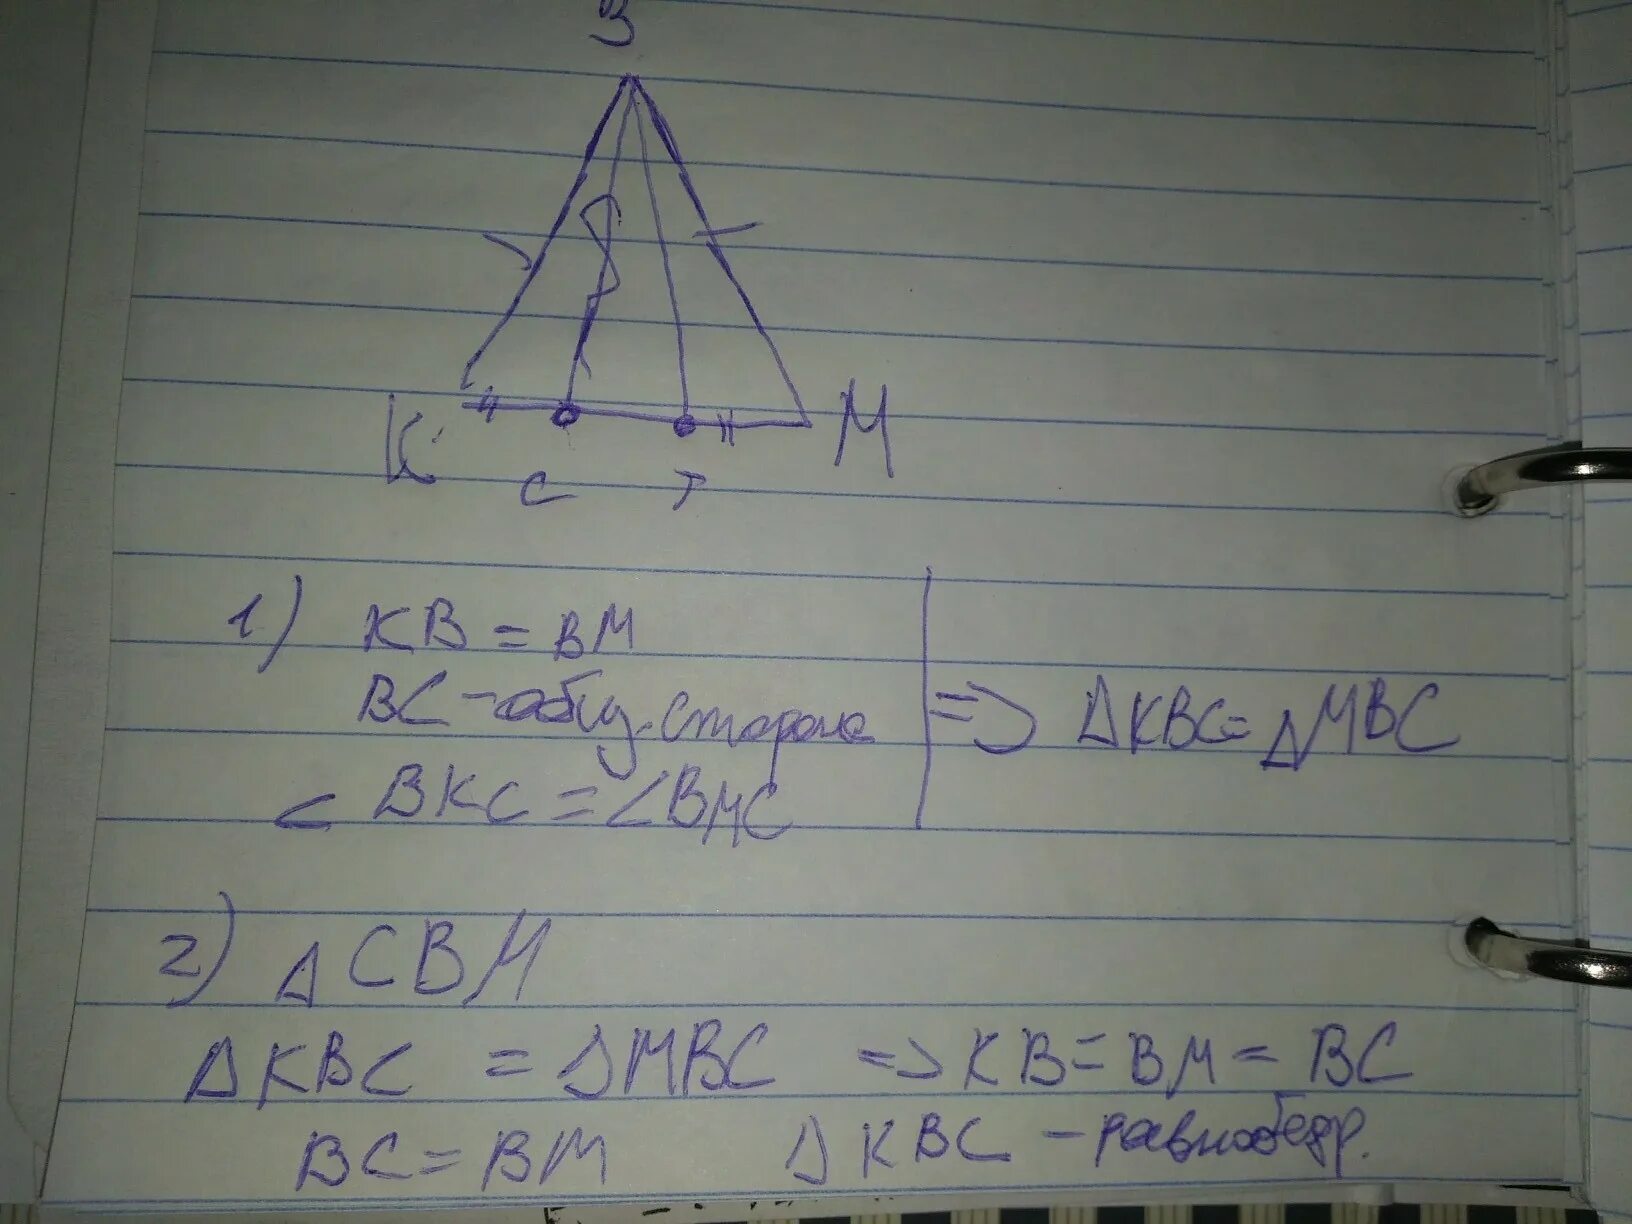 B
K M
C T
1) KB = BM
BC - общ. сторона => ΔKBC = ΔMBC
∠BKC = ∠BMC
2) ΔCBM
ΔKBC = ΔMBC => KB = BM = BC
BC = BM ΔKBC - равнобедр.